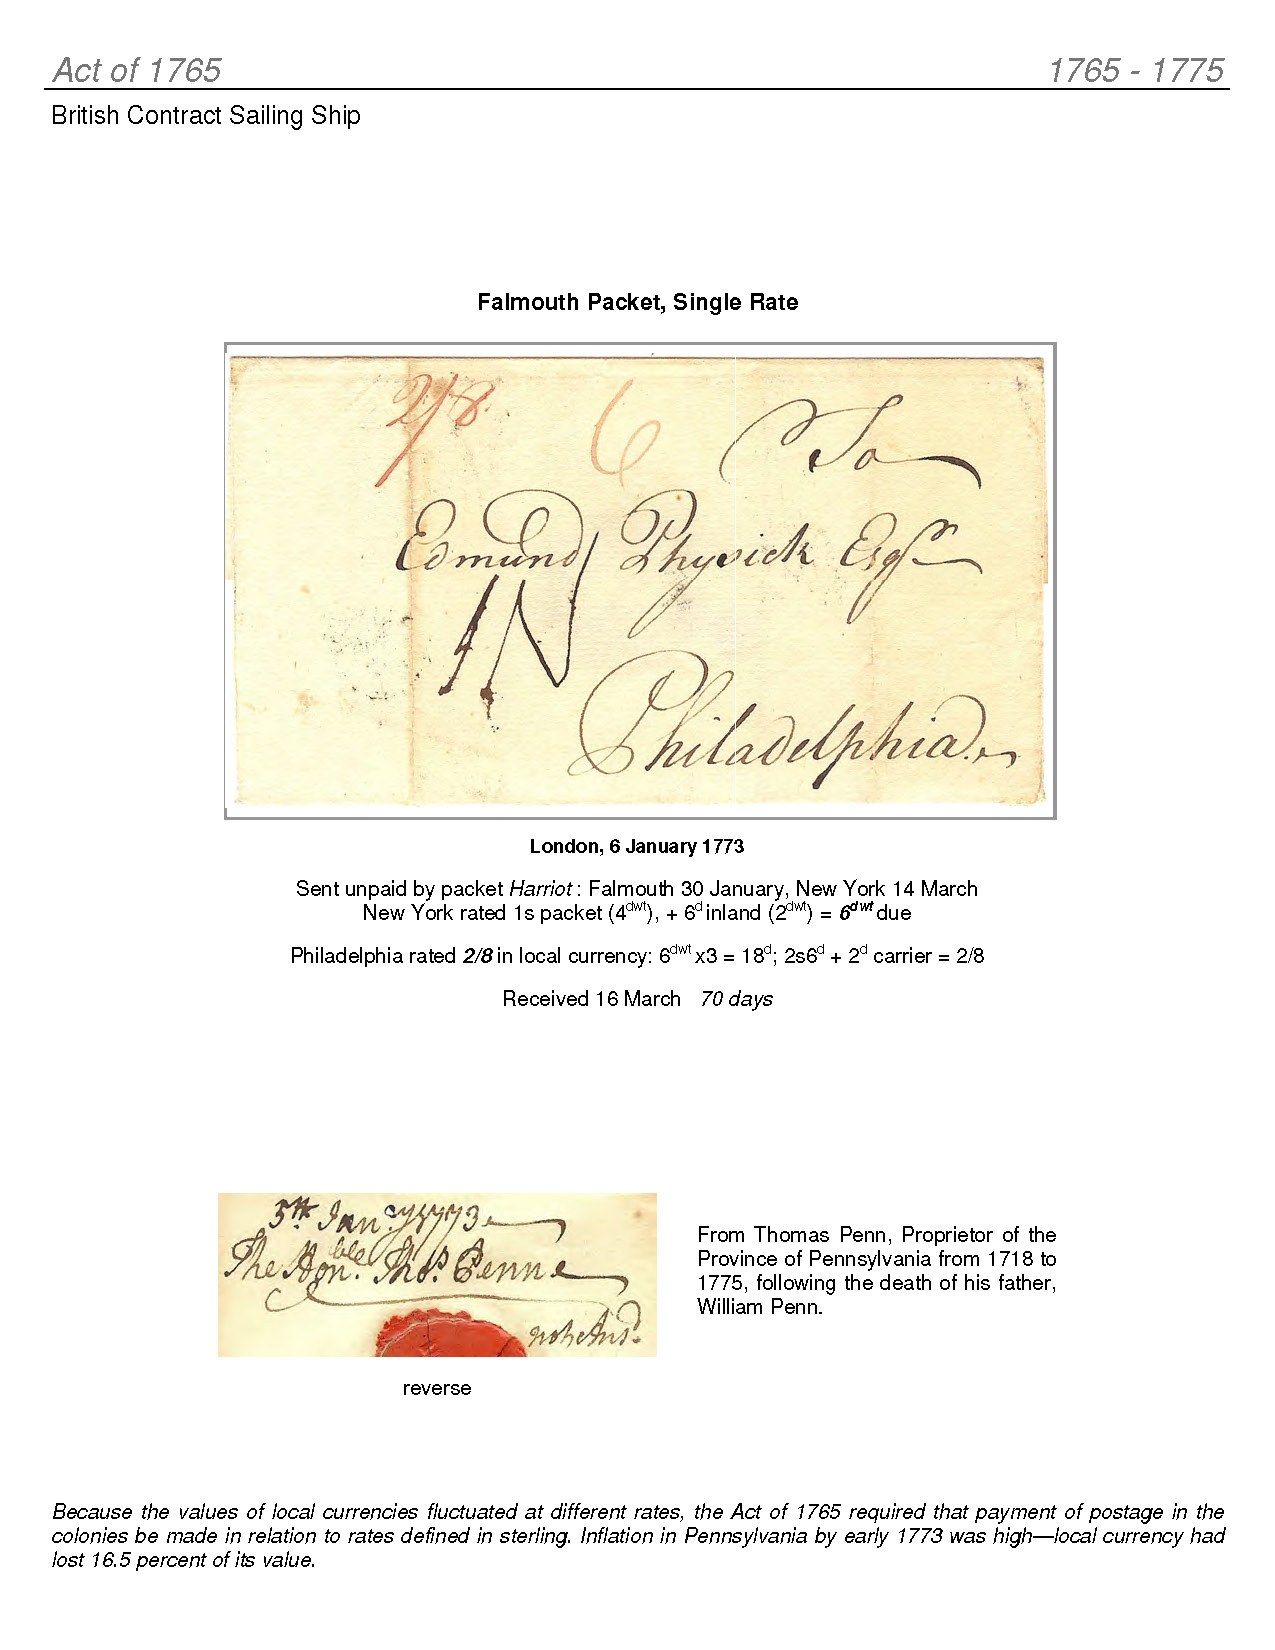 Act of 1765 1765 - 1775
British Contract Sailing Ship
Falmouth Packet, Single Rate
2/8 6 To
Edmund Physick Esqr
1N
Philadelphia
London, 6 January 1773
Sent unpaid by packet Harriot : Falmouth 30 January, New York 14 March
New York rated 1s packet (4dwt), + 6d inland (2dwt) = 6dwt due
Philadelphia rated 2/8 in local currency: 6dwt x3 = 18d; 2s6d + 2d carrier = 2/8
Received 16 March 70 days
5th Jany 1773
The Honble Thos Penn
From Thomas Penn, Proprietor of the
Province of Pennsylvania from 1718 to
1775, following the death of his father,
William Penn.
reverse
Because the values of local currencies fluctuated at different rates, the Act of 1765 required that payment of postage in the
colonies be made in relation to rates defined in sterling. Inflation in Pennsylvania by early 1773 was high—local currency had
lost 16.5 percent of its value.